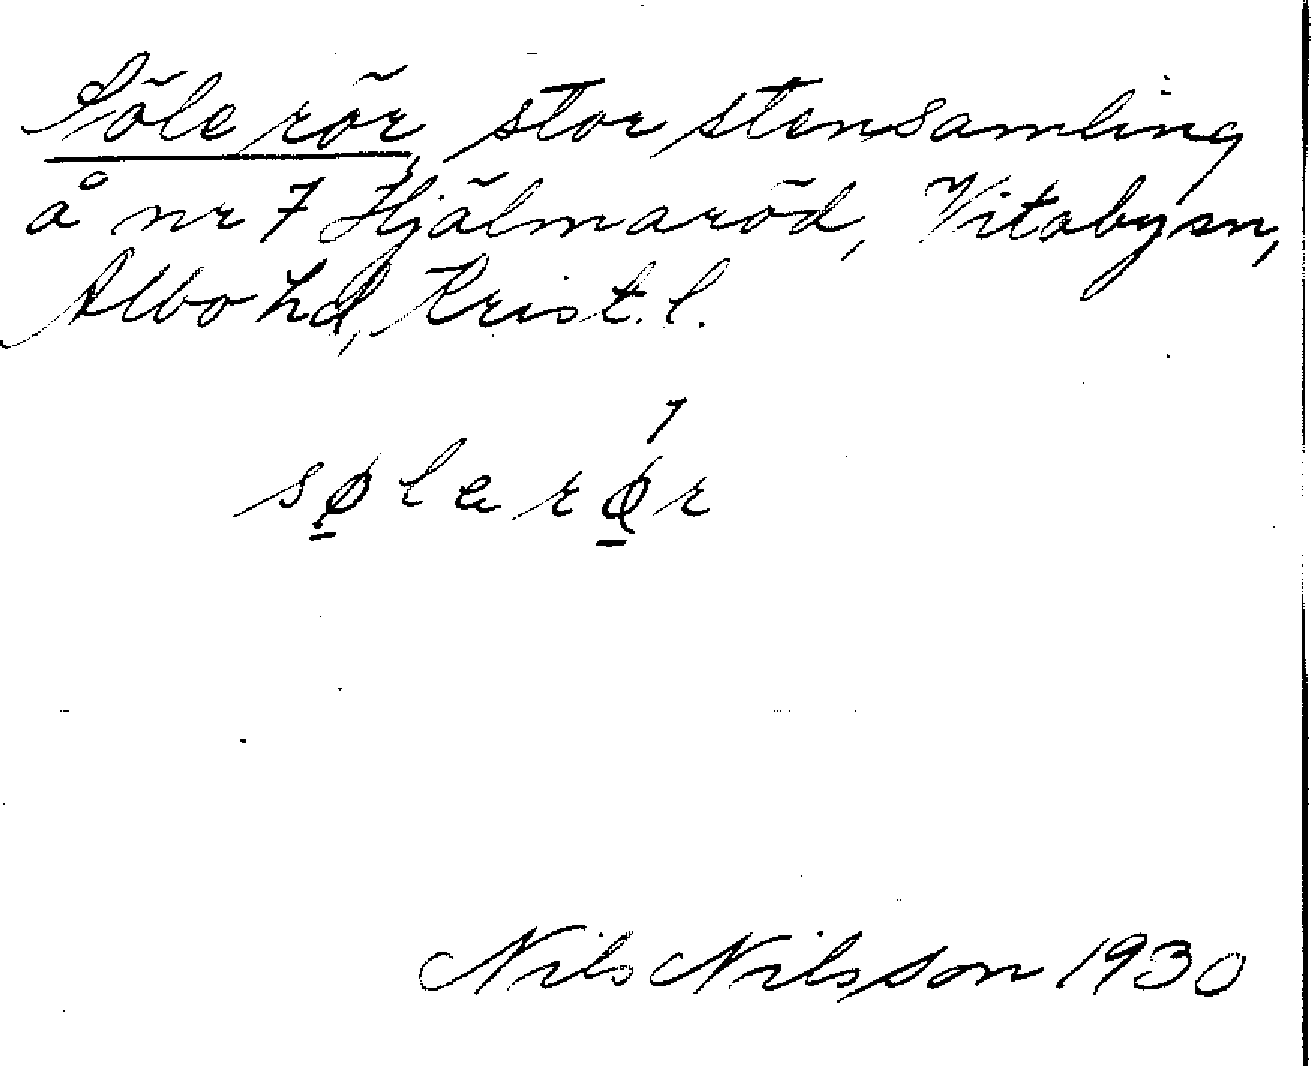 Söle rör, stor stensamling
å nr 7 Hjälmaröd, Vitabysn,
Albo hd, Krist. l.
sølarør
Nils Nilsson 1930